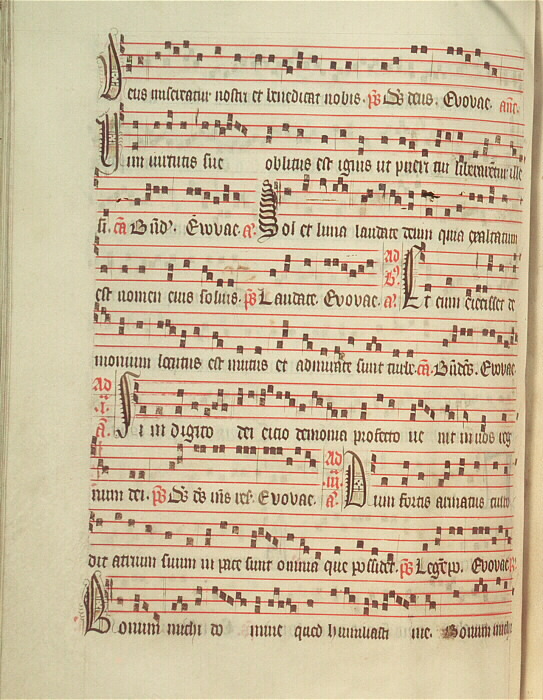 Deus misereatur nostri et benedicat nobis. ps Ds deus. Evovae. añe.
Vim virtutis sue oblitus est ignis ut pueri tui liberarentur ille
si. ca Bñd. Evovae. a. Sol et luna laudate deum quia exaltatum
est nomen eius solius. ps Laudate. Evovae. a. Ad B Et cum eiecisset de
monium locutus est mutus et admirate sunt turbe. ca Bñdcs. Evovae.
Ad i. a. Si in digito dei eicio demonia profecto ve nit in vos reg
num dei. ps Ds ds ms res. Evovae. Ad iii. a. Dum fortis armatus custo
dit atrium suum in pace sunt omnia que possidet. ps Lege p. Evovae.
Bonum michi do mine quod humiliasti me. Bonum michi